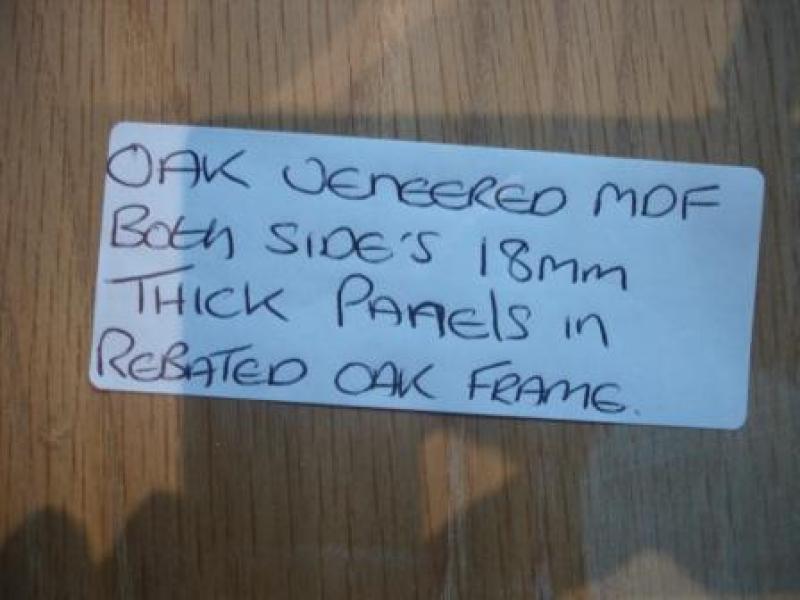 OAK VENEERED MDF
Both SIDE'S 18mm
THICK PANEls in
REBATED OAK FRAME.